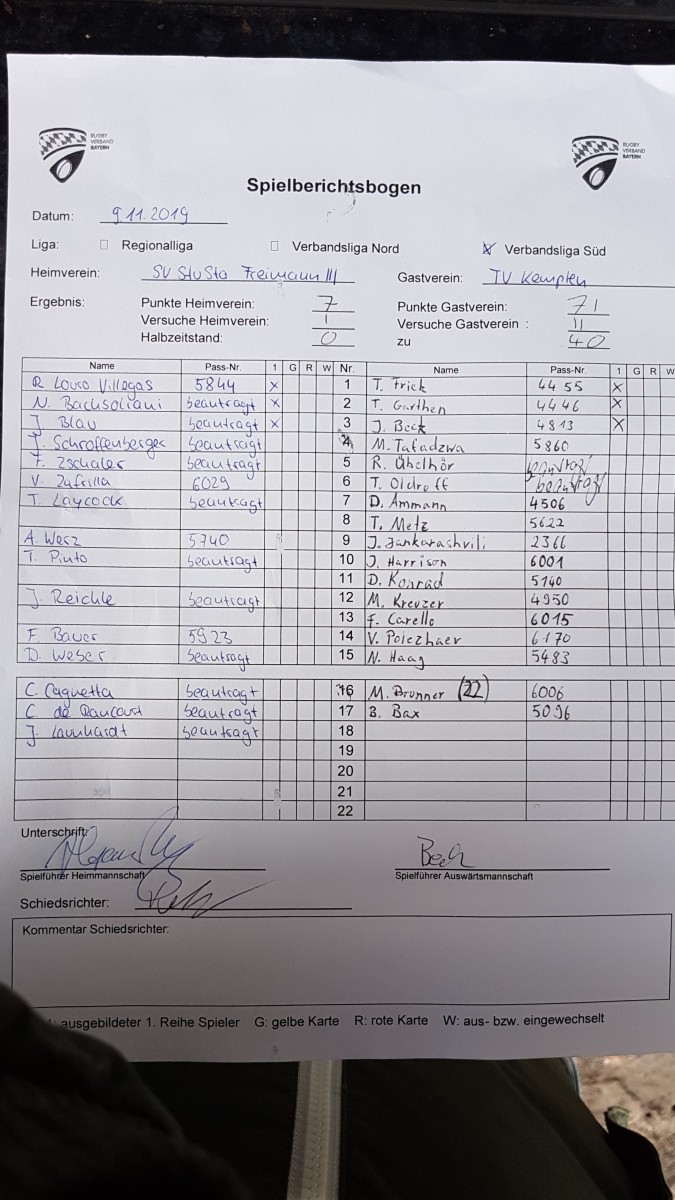 RUGBY VERBAND BAYERN
RUGBY VERBAND BAYERN
Spielberichtsbogen
Datum: 9.11.2019
Liga: Regionalliga Verbandsliga Nord Verbandsliga Süd
Heimverein: SV StuSta Freimann III Gastverein: TV Kempten
Ergebnis: Punkte Heimverein: 7 Punkte Gastverein: 71
Versuche Heimverein: 1 Versuche Gastverein : 11
Halbzeitstand: 0 zu 40
Name Pass-Nr. 1 G R W Nr. Name Pass-Nr. 1 G R W
R Louro Villegas 5844 x 1 T. Frick 4455 x
N. Bachsoliani beauftragt x 2 T. Garthen 4446 x
J Blau beauftragt x 3 J. Beck 4813 x
J. Schroffenberger beauftragt 4 M. Tafadzwa 5860
F. Zschaler beauftragt 5 R. Übelhör beauftragt
V. Zafrilla 6029 6 T. Oldroff beauftragt
T. Laycock beauftragt 7 D. Ammann 4506
8 T. Metz 5622
A. Werz 5740 9 J. Jankarashvili 2366
T. Pinto beauftragt 10 J. Harrison 6001
11 D. Konrad 5140
J. Reichle beauftragt 12 M. Kreuzer 4950
13 F. Carello 6015
F. Bauer 5923 14 V. Polezhaev 6170
D. Weber beauftragt 15 N. Haag 5483
C. Caquetta beauftragt 16 M. Brunner (22) 6006
C. de Rancourt beauftragt 17 B. Bax 5096
J. Launhardt beauftragt 18
19
20
21
22
Unterschrift:
Beck
Spielführer Heimmannschaft Spielführer Auswärtsmannschaft
Schiedsrichter:
Kommentar Schiedsrichter:
ausgebildeter 1. Reihe Spieler G: gelbe Karte R: rote Karte W: aus- bzw. eingewechselt